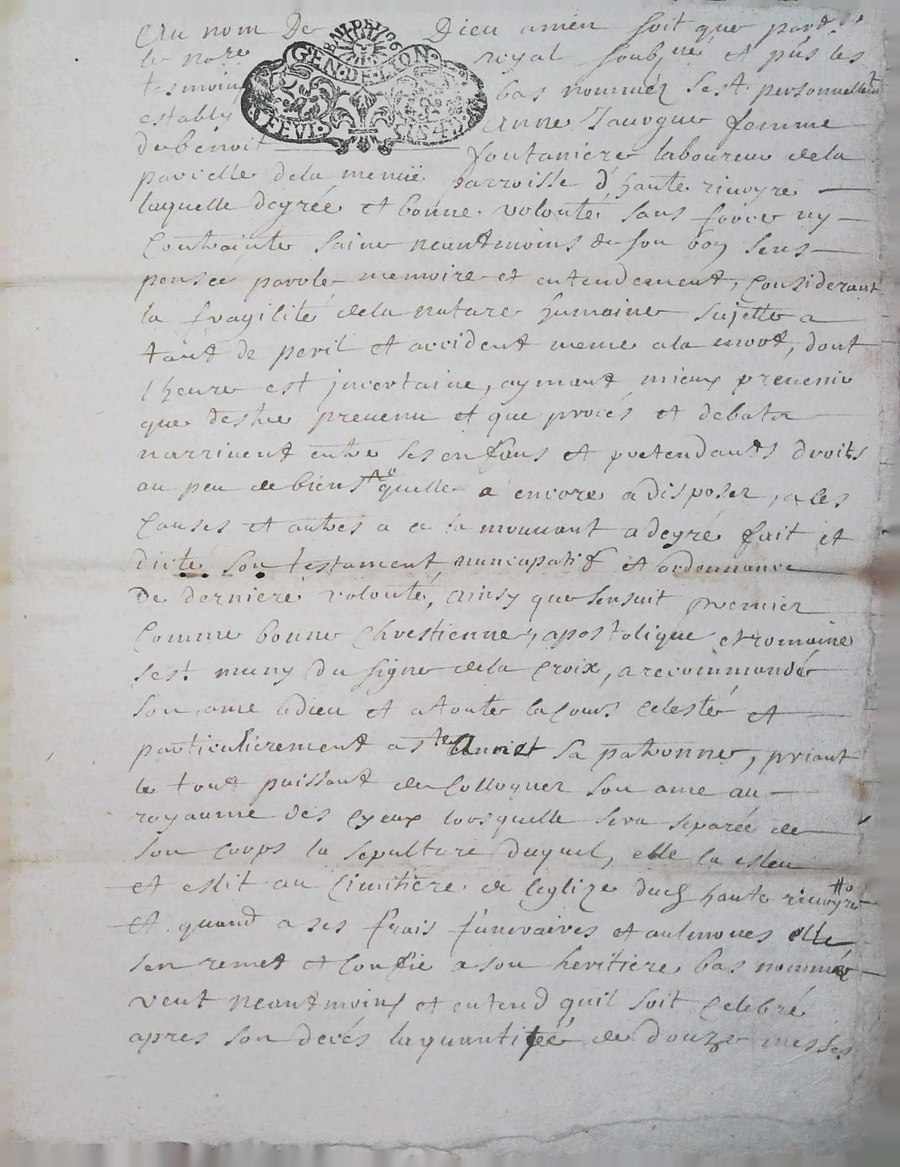 Au nom De Dieu amen soit que pard.t
le no.re royal soubz.né et pñs les
tesmoins bas nommez sest personnellem.t
establi Anne Jauvogue femme
de benoit fontaniere laboureur de la
parcelle dela menüe parroisse d'haute rivoyre
laquelle degrée et bonne volonté sans force ny
Contrainte saine neantmoins de son bon sens
pensee parole memoire et entendement, Considerant
la fragilité dela nature humaine sujette a
tant de peril et accident meme ala mort, dont
l heure est incertaine, aymant mieux prevenir
que destre prevenu et que procés et debats
narrivent entre ses enfans et pretendants droits
au peu de biens quelle a encore a disposer, a ces
Causes et autres a ce la mouvant adegré fait et
dicté son testament nuncupatif et ordonnance
De derniere volonté, ainsy que sensuit premier
Comme bonne Chrestienne, apostolique et romaine
sest muny du signe dela Croix, a recommandé
son ame adieu et a toute la Cour Celeste et
particulierement a s.te Anne sa patronne, priant
le tout puissant de Colloquer son ame au
royaume des Cyeux lorsquelle sera separée de
son Corps la sepulture duquel, elle la esleu
et eslit au Cimitiere de leglize dud haute rivoyre
Et quand a ses frais funeraires et aulmones elle
sen remet et Confie a son heritiere bas nommée
veut neantmoins et entend quil soit Celebré
apres son decés la quantitée de douze messes
GEN·DE·LION